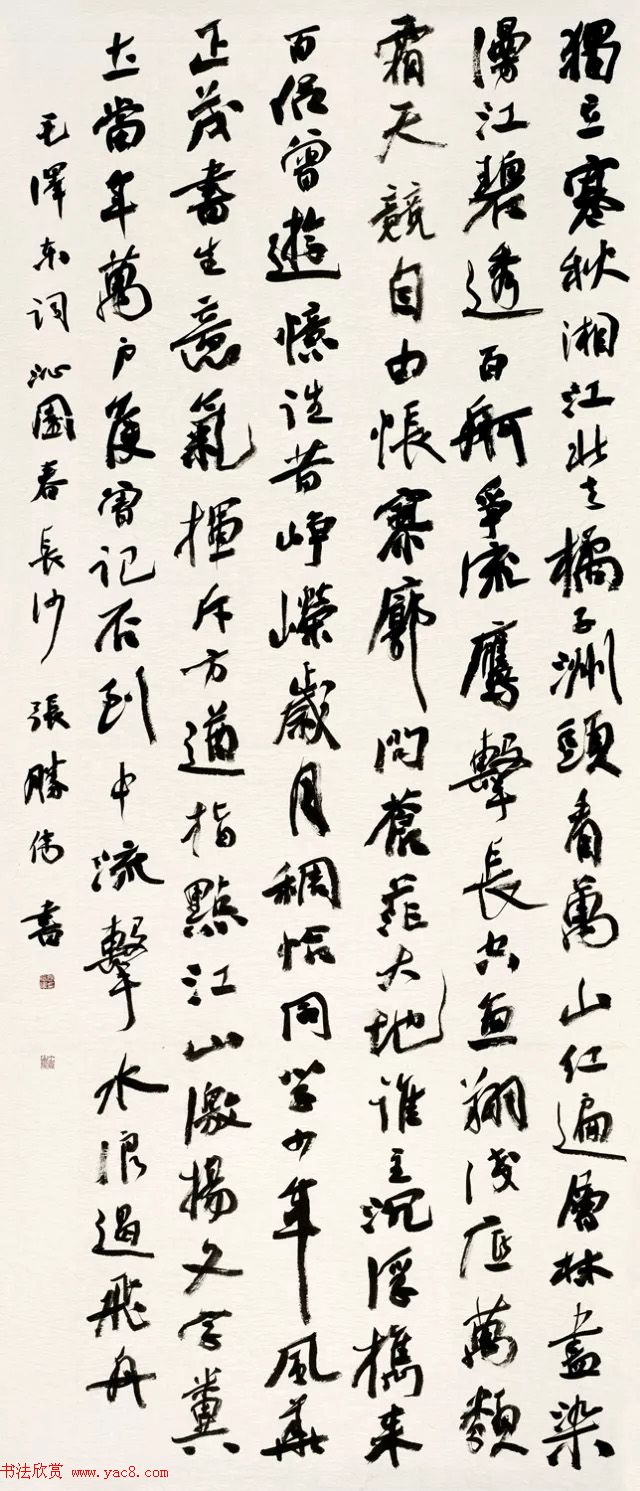 獨立寒秋湘江北去橘子洲頭看萬山紅遍層林盡染
漫江碧透百舸爭流鷹擊長空魚翔淺底萬類
霜天競自由悵寥廓問蒼茫大地誰主沉浮攜来
百侶曾遊憶往昔崢嶸歲月稠恰同學少年風華
正茂書生意氣揮斥方遒指點江山激揚文字糞
土當年萬户侯曾記否到中流擊水浪遏飛舟
毛澤东詞沁園春長沙 張勝偉書
书法欣赏 www.yac8.com